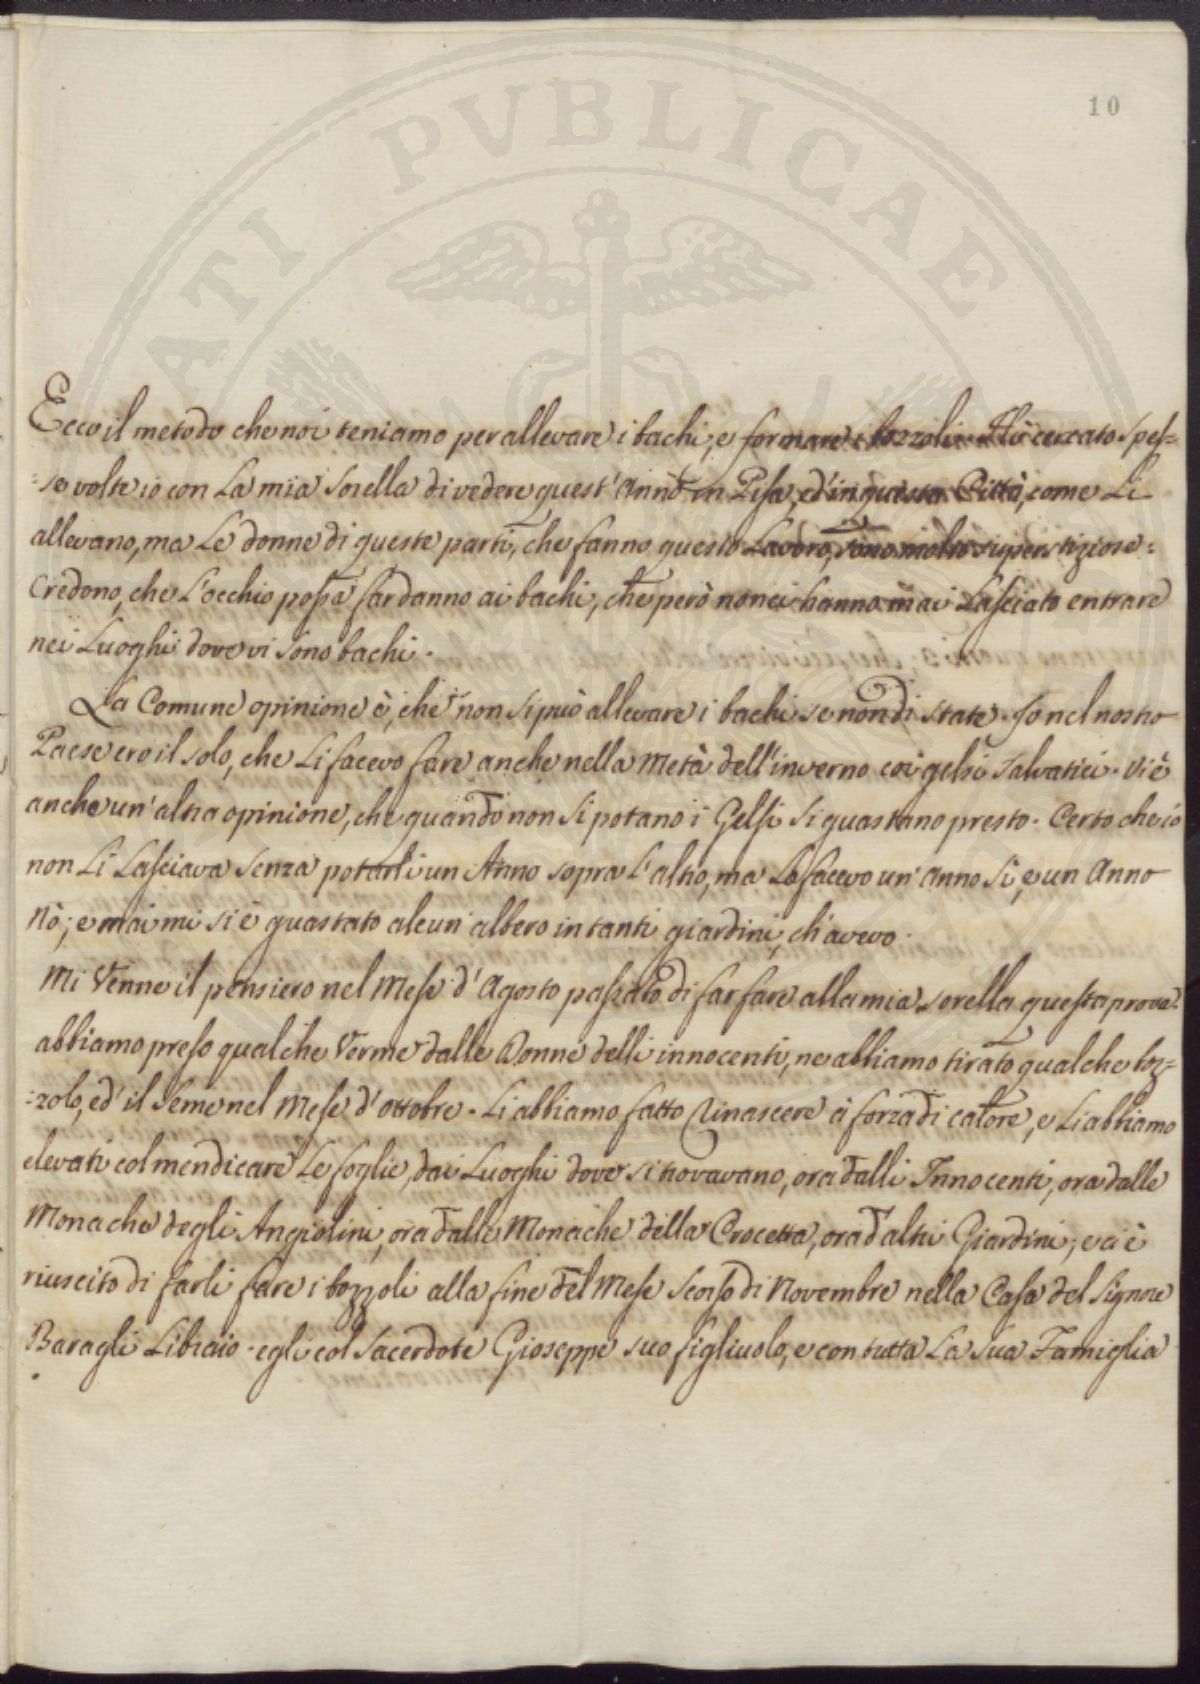 10
ATI PVBLICAE
Ecco il metodo che noi teniamo per allevare i bachi, e formare i bozzoli. Hò cercato spes-
-se volte io con La mia sorella di vedere quest'Anno in Pisa, ed'in questa Città, come Li
allevano, ma Le donne di queste parti, che fanno questo Lavoro, sono molto superstiziose:
Credono, che L'occhio possa far danno ai bachi, che però non ci hanno mai Lasciato entrare
nei Luoghi dove vi sono bachi.
La Comune opinione è, che non si può allevare i bachi se non di state. Io nel nostro
Paese ero il solo, che Li facevo fare anche nella Metà dell'inverno coi gelsi salvatici. Vi è
anche un'altra opinione, che quando non si potano i Gelsi si guastano presto. Certo che io
non Li Lasciava senza potarli un Anno sopra L'altro, ma Lo facevo un'Anno Sì, e un Anno
Nò; e mai mi si è guastato alcun'albero in tanti giardini, ch'avevo.
Mi Venne il pensiero nel Mese d'Agosto passato di far fare alla mia sorella questa prova.
abbiamo preso qualche Verme dalle Donne delli innocenti, ne abbiamo tirato qualche boz-
-zolo, ed'il Seme nel Mese d'ottobre. Li abbiamo fatto Rinascere à forza di calore, e Li abbiamo
elevati col mendicare Le foglie, dai Luoghi dove si trovavano, ora dalli Innocenti, ora dalle
Monache degli Angiolini, ora dalle Monache della Crocetta, ora d'altri Giardini; e ci è
riuscito di farli fare i bozzoli alla fine del Mese scorso di Novembre nella Casa del Signore
Baragli Libraio. egli col Sacerdote Gioseppe suo figliuolo, e con tutta La Sua Famiglia